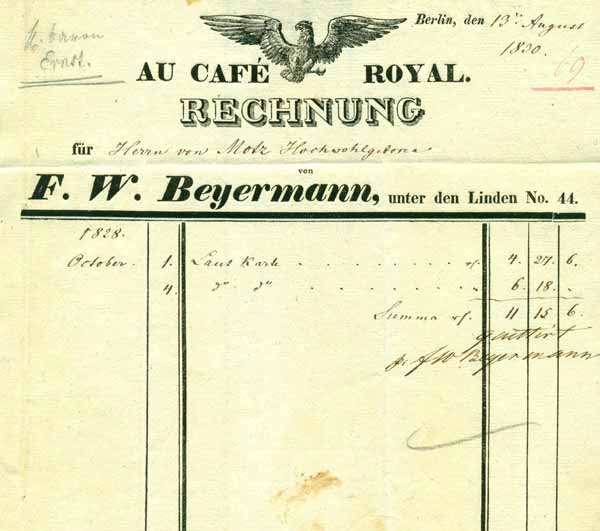 Berlin, den 13ᵗ August
1830.
69
AU CAFÉ ROYAL.
RECHNUNG
für Herrn von Motz Hochwohlgeboren
von
F. W. Beyermann, unter den Linden No. 44.
1828.
October. 1. Laut Karte . . . . . . . . rf. 4. 27. 6.
4. do do . . . . . . . . " 6. 18. .
Summa rf. 11 15 6
quittirt
p. FW Beyermann